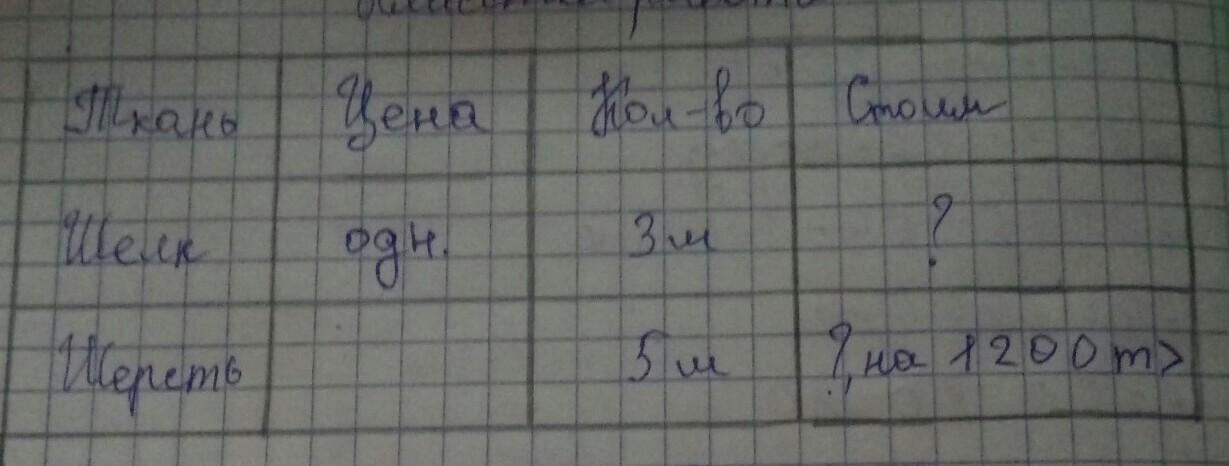 Ткань Цена Кол-во Стоим
Шелк одн. 3м ?
Шерсть 5м ?, на 1200т>